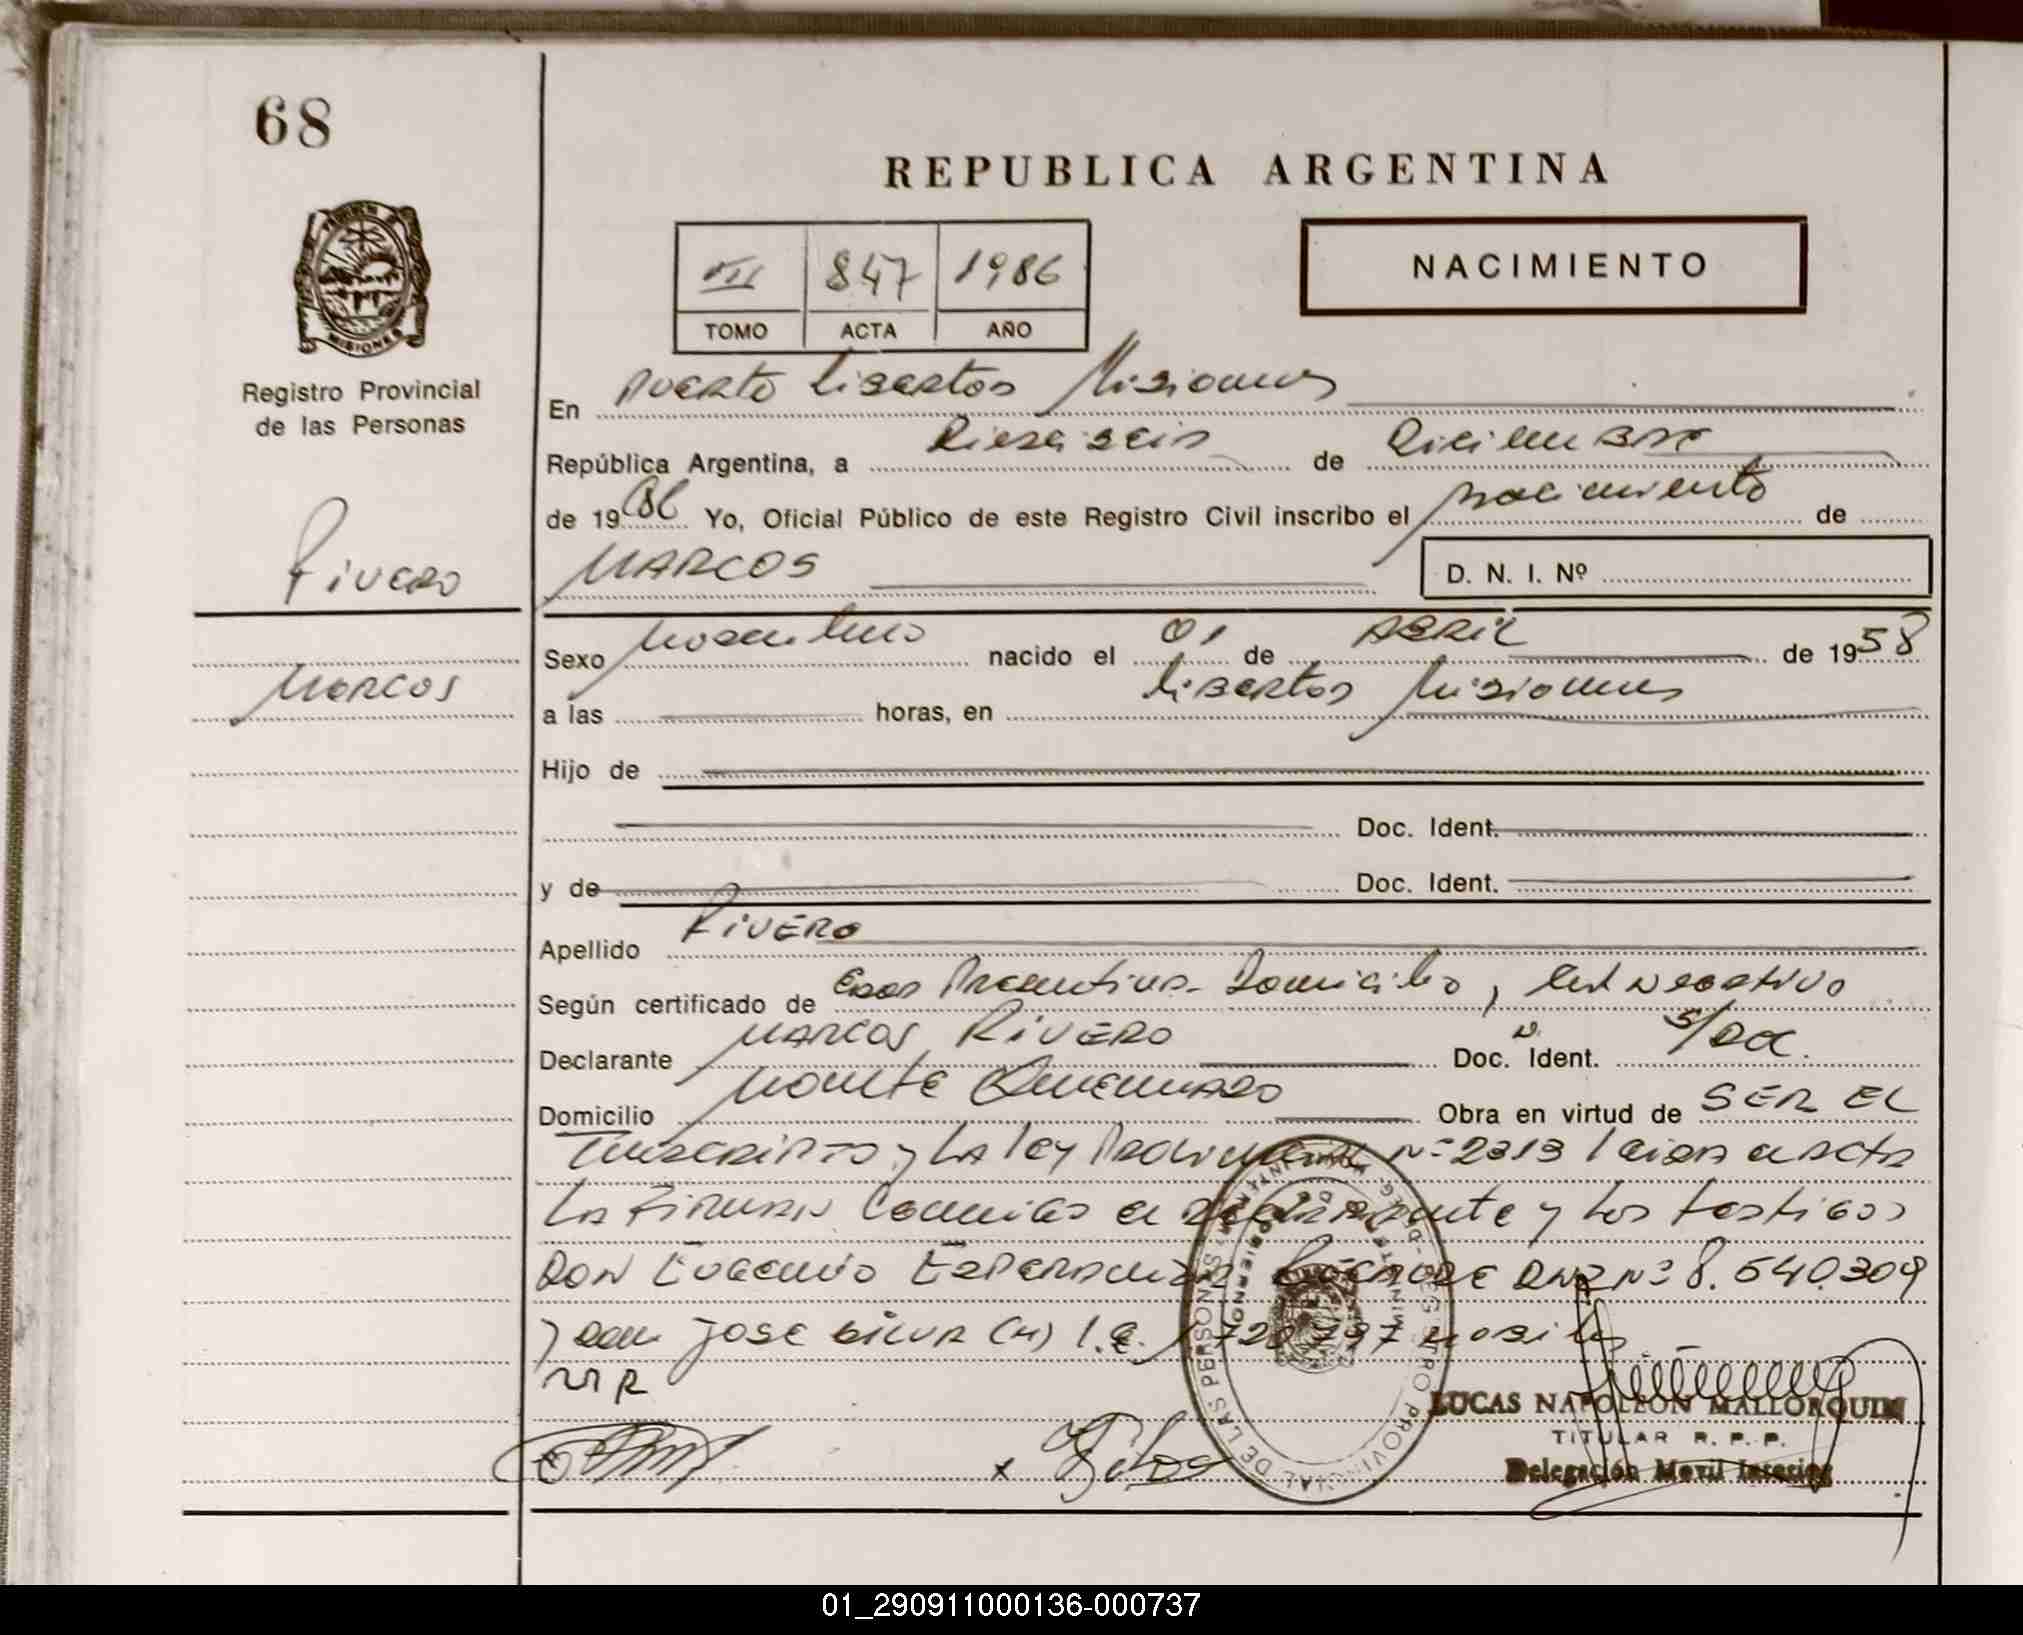 68
REPUBLICA ARGENTINA
MISIONES
Registro Provincial
de las Personas
VII 847 1986
TOMO ACTA AÑO
NACIMIENTO
En Puerto Libertad Misiones
República Argentina, a Dieciseis de Diciembre
de 1986 Yo, Oficial Público de este Registro Civil inscribo el nacimiento de
Rivero
MARCOS
D. N. I. Nº
Marcos
Sexo Masculino nacido el 01 de ABRIL de 1958
a las horas, en Libertad Misiones
Hijo de
Doc. Ident.
y de Doc. Ident.
Apellido RIVERO
Según certificado de Edad Presuntiva - Domicilio, Cert Negativo
Declarante MARCOS RIVERO Doc. Ident. S/Doc.
Domicilio Monte Quemado Obra en virtud de SER EL
Inscripto y La Ley Provincial Nº 2313 Leida el Acta
La Firman Conmigo el declarante y Los testigos
DON Eugenio DNI Nº 8.540.309
y Don Jose Silva (h) 
LUCAS NAPOLEON MALLORQUIN
TITULAR R. P. P.
Delegación Movil Interior
REGISTRO PROVINCIAL DE LAS PERSONAS
01_290911000136-000737